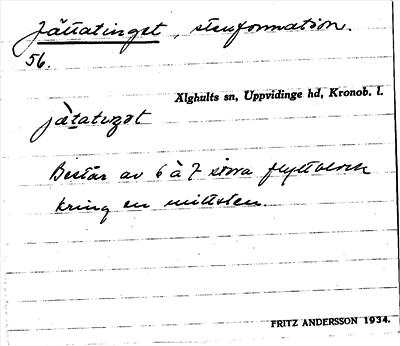 Jättatinget, stenformation.
56.
Älghults sn, Uppvidinge hd, Kronob. l.
Består av 6 à 7 stora flyttblock
kring en mittsten.
FRITZ ANDERSSON 1934.